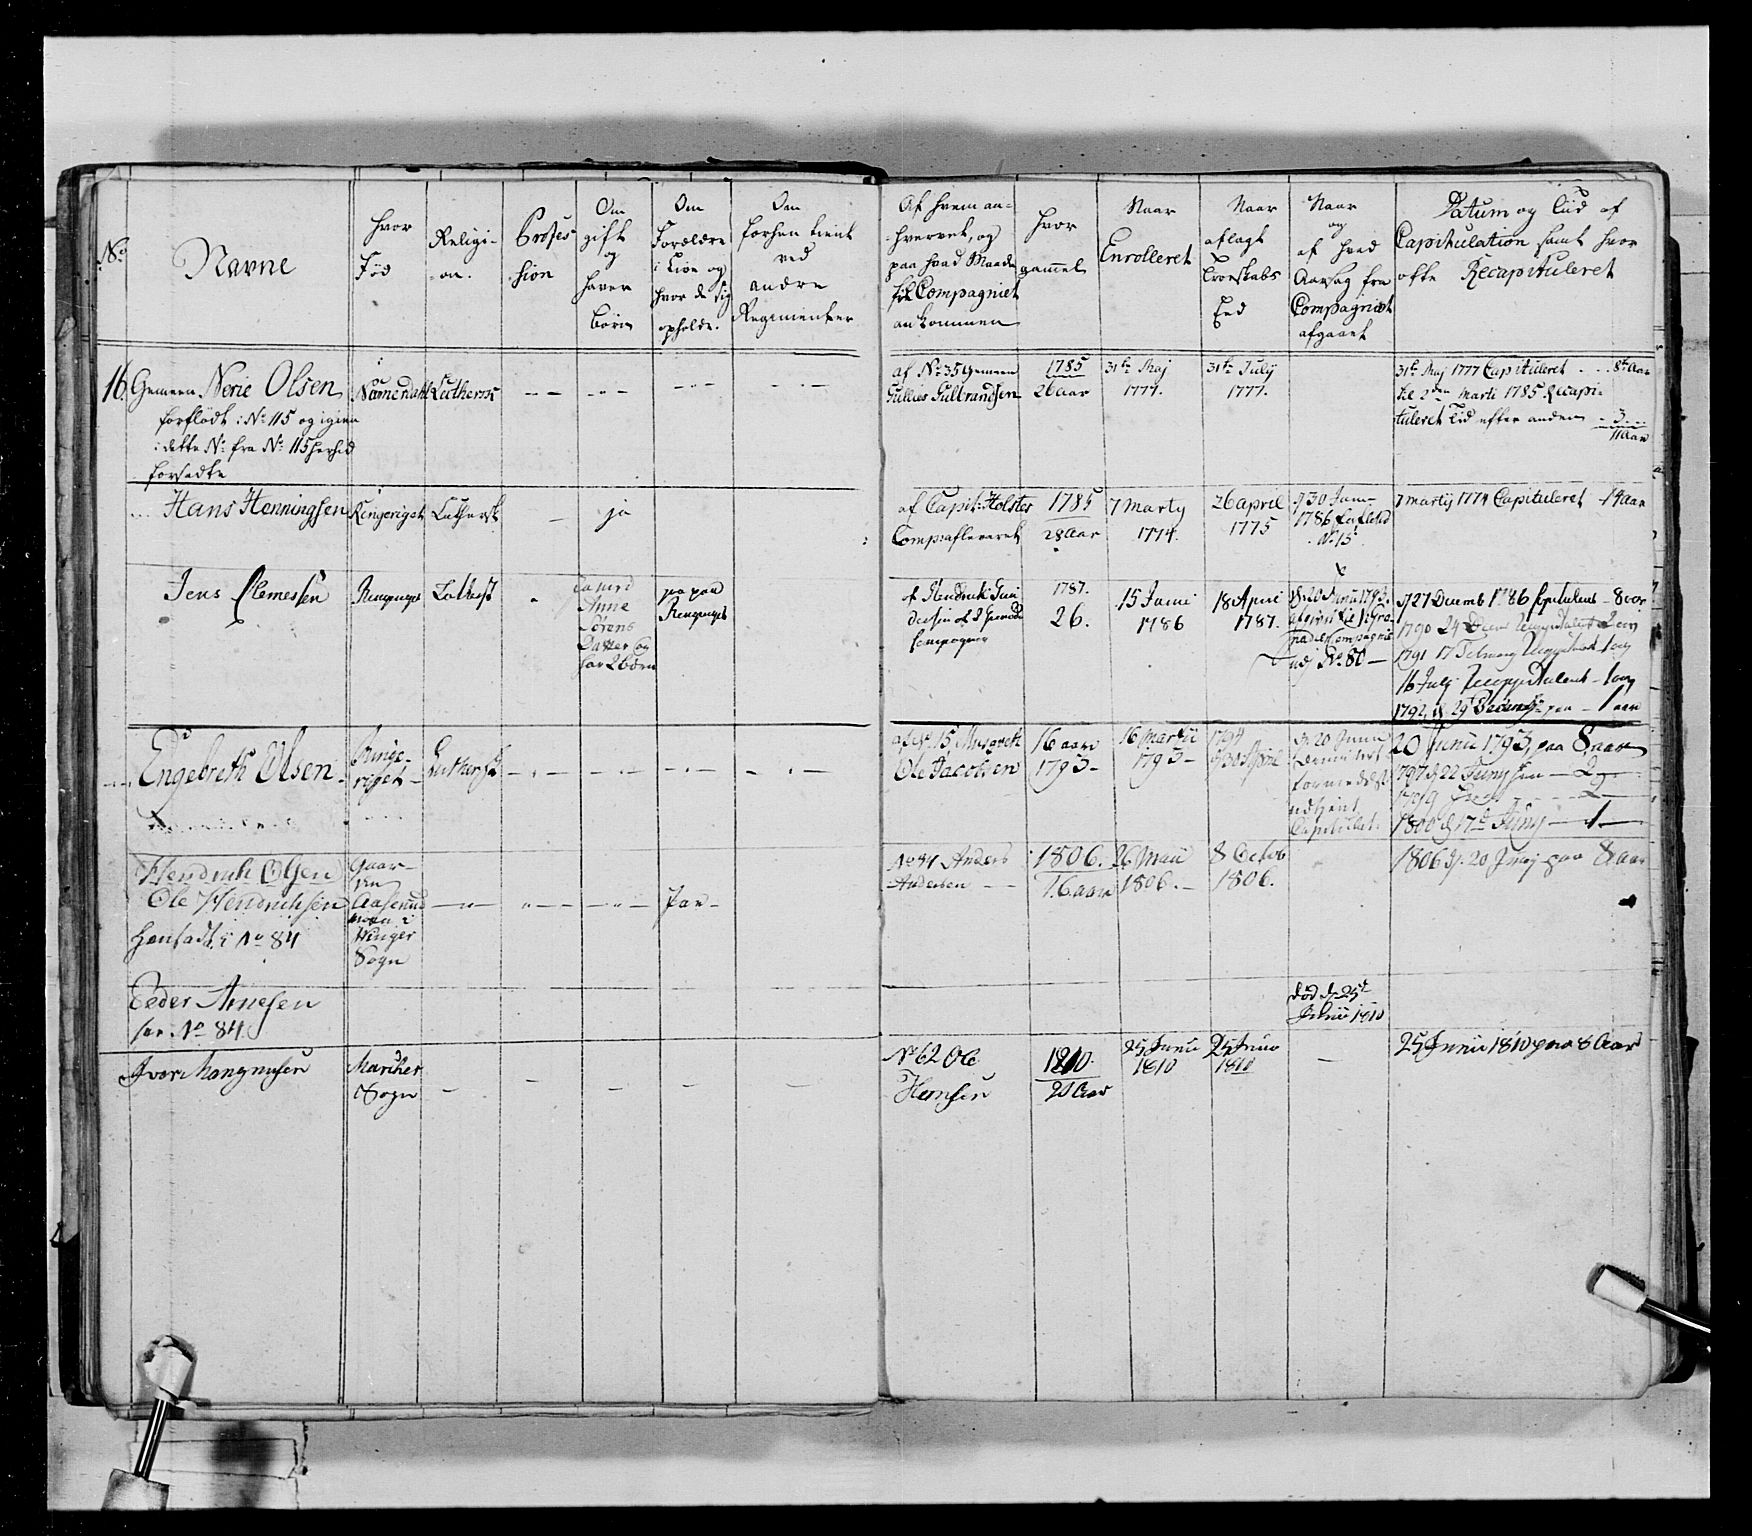 No
Navne
Hvor
Fød
Religi-
on.
Profes
sion
Om
gift
og
haver
Børn
Om
Forældre
i Live og
hvor de sig
opholde.
Om
forhen tient
ved
andre
Regimenter
Af hvem an-
hvervet, og
paa hvad Maade
til Compagniet
ankommen
Hvor
gammel
Naar
Enrolleret
Naar
aflagt
Troeskabs
Eed
Naar
og
af hvad
Aarsag fra
Compagniet
afgaaet
Datum og Tiid af
Capitulation samt hvor
ofte Recapituleret
16. Gemeen Nerie Olsen
forflødt i No 115 og igien
i dette No fra No 115 herhid
forsadte
Nummedahl
Luthersk
af No 35 Gemeen
Gullich Gulbrandsen
1785
26 aar
31te Maj
1777.
31te Julij
1777.
31te Maj 1777 Capituleret - - 8te Aar
til 2den Marti 1785 Recapi-
tuleret Tid efter anden - 3 -
11 Aar
Hans Henningsen
Ringeriget
Luthersk
ja
af Capit: Holsters
Comp: afleveret
1785
28 Aar
7 Marty
1774.
26 april
1775
d 30 Jun-
1786 forflöted
No 15
7 martij 1774 Capituleret - 14 Aar
Jens Clemessen
Ringeriget
Luthersk
ja med
Anne
Sörens
Datter og
har 2 børn
ja paa
Ringeriget
af Hendrich Gun
dersen
Compagnie
1787.
26.
15 Junii
1786
18 April
1787.
d 20 Junii 1793.
afgiven til 1 Gre-
nadeer Compagnie
No 80 -
d 27 Decemb 1786 Capitulert - 8 aar
1790 24 Decem Recapitulert 2 aar
1791 17 February Recapitulert - 1 aar
16 Julij Recapitulert - 1 aar
1792 d 29 Decembr paa - 1 aar
Engebreth Olsen
Ringe-
riget
Luthersk
af No. 15,
Ole Jacobsen
16 aar
1793 -
16 Martii
1793 -
1794
d 30 April
d 20 Junii
udtient
Capitulat.
20 Junii 1793, paa 8 aar
797 d 22 Juny - 2 -
1799 - 2 -
1800 d 17d Juny - 1 -
Hendrich Olsen
Ole Hendrichsen
hensadt i No 84
Gaar-
den
Aaserud
i
Winger
Sogn
Ja -
No 84 Anders
Andersen - -
1806.
16 aar
26 Maii
1806. -
8 Octob
1806.
1806 d. 20 Juny paa 8 aar
Peder Arnesen
No 84
død d. 25d
1810
Iver Mangnusen
Marcher
Sogn
No 62 Ole
Hemsen
1810.
20 Aar
25 Junii
1810
25 Junii
1810
25 Junii 1810 paa 8 Aar